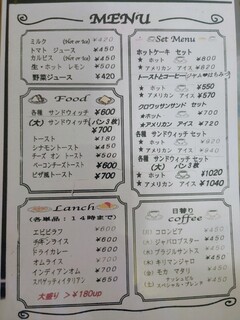 MENU
ミルク (Hot or Ice) ¥420
トマト ジュース ¥450
カルピス (Hot or Ice) ¥450
生・ホット レモン ¥500
野菜ジュース ¥420
Food
各種 サンドウィッチ ¥600
(大) サンドウィッチ(パン3枚)
¥700
トースト ¥180
シナモントースト ¥450
チーズ オン トースト ¥500
ベーコンチーズトースト ¥600
ピザ風トースト ¥700
Lanch
(各単品:14時まで)
エビピラフ ¥600
チキンライス ¥600
ドライカレー ¥600
オムライス ¥700
インディアンオム ¥700
スパゲッティイタリアン ¥850
大盛り > ¥180up
Set Menu
ホットケーキ セット
★ ホット ¥800
★ アメリカン アイス ¥820
トーストとコーヒー
★ ホット ¥550
★アメリカン アイス ¥570
クロワッサンサンド セット
★ホット ¥700
★アメリカン アイス ¥720
各種 サンドウィッチ セット
★ ホット ¥800
★ アメリカン アイス ¥820
各種 サンドウィッチ セット
(大)
★ ホット ¥1020
★ アメリカン アイス ¥1040
日替り
coffee
(月) コロンビア ¥500
(火) ジャバロブスター ¥500
(水) ブラジルサントス ¥500
(木) キリマンジャロ ¥500
(金) モカ マタリ ¥500
スペシャル・ブレンド